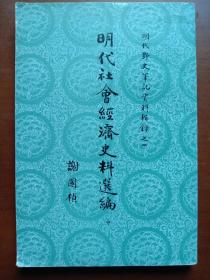 明代野史筆記資料輯錄之一
明代社會經濟史料選編
謝國楨